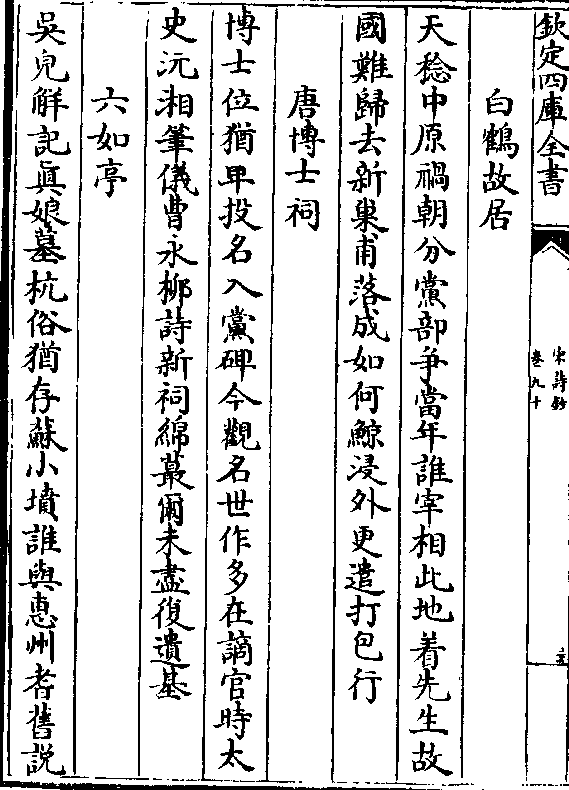 欽定四庫全書
宋詩鈔
卷九十
白鶴故居
天稔中原禍朝分黨部爭當年誰宰相此地着先生故
國難歸去新巢甫落成如何鯨浸外更遣打包行
唐博士祠
博士位猶卑投名入黨碑今觀名世作多在謫官時太
史沅湘筆儀曹永柳詩新祠綿蕞爾未盡復遺基
六如亭
吳兒解記真娘墓杭俗猶存蘇小墳誰與惠州耆舊説